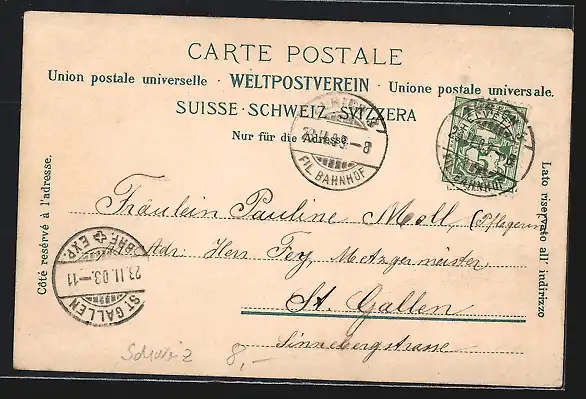 CARTE POSTALE
Union postale universelle · WELTPOSTVEREIN · Unione postale universale.
SUISSE · SCHWEIZ · SVIZZERA
Nur für die Adresse
FIL. BAHNHOF
23.II.03.-8
FIL. BAHNHOF
5
Côté reservé à l'adresse.
Lato riservato all' indirizzo
Fräulein Pauline Moll, (Pflegerin
Adr: Herr Fey, Metzgermeister
St. Gallen
Sinnebergstrasse
ST GALLEN
23.II.03.-11
BRF. EXP.
Schweiz 8,-